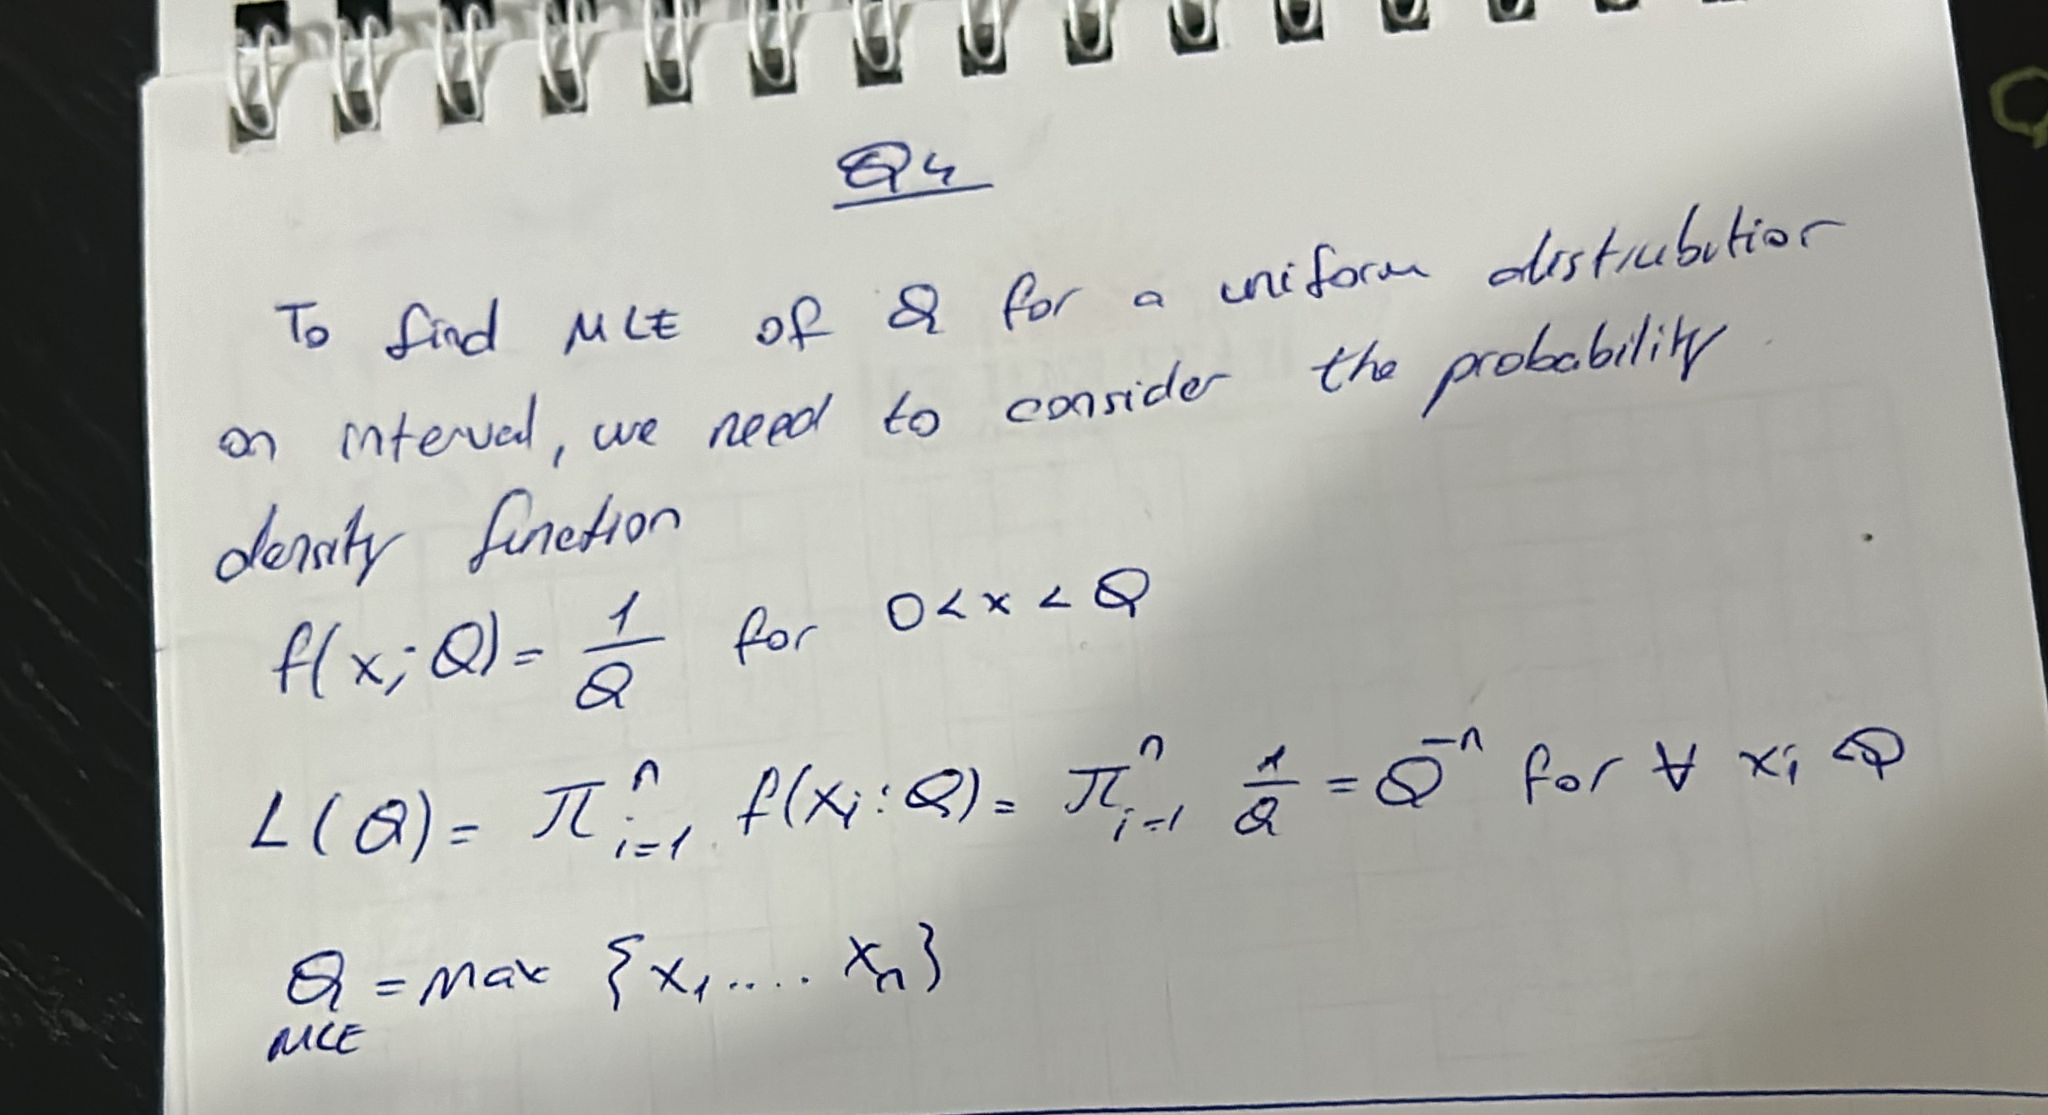 Q4
To find MLE of Q for a uniform distribution
on interval, we need to consider the probability
density function
f(x; Q) = 1/Q for 0 < x < Q
L(Q) = π^n_{i=1} f(x_i : Q) = π^n_{i=1} 1/Q = Q^{-n} for ∀ x_i < Q
Q_MLE = max {x_1 .... x_n}